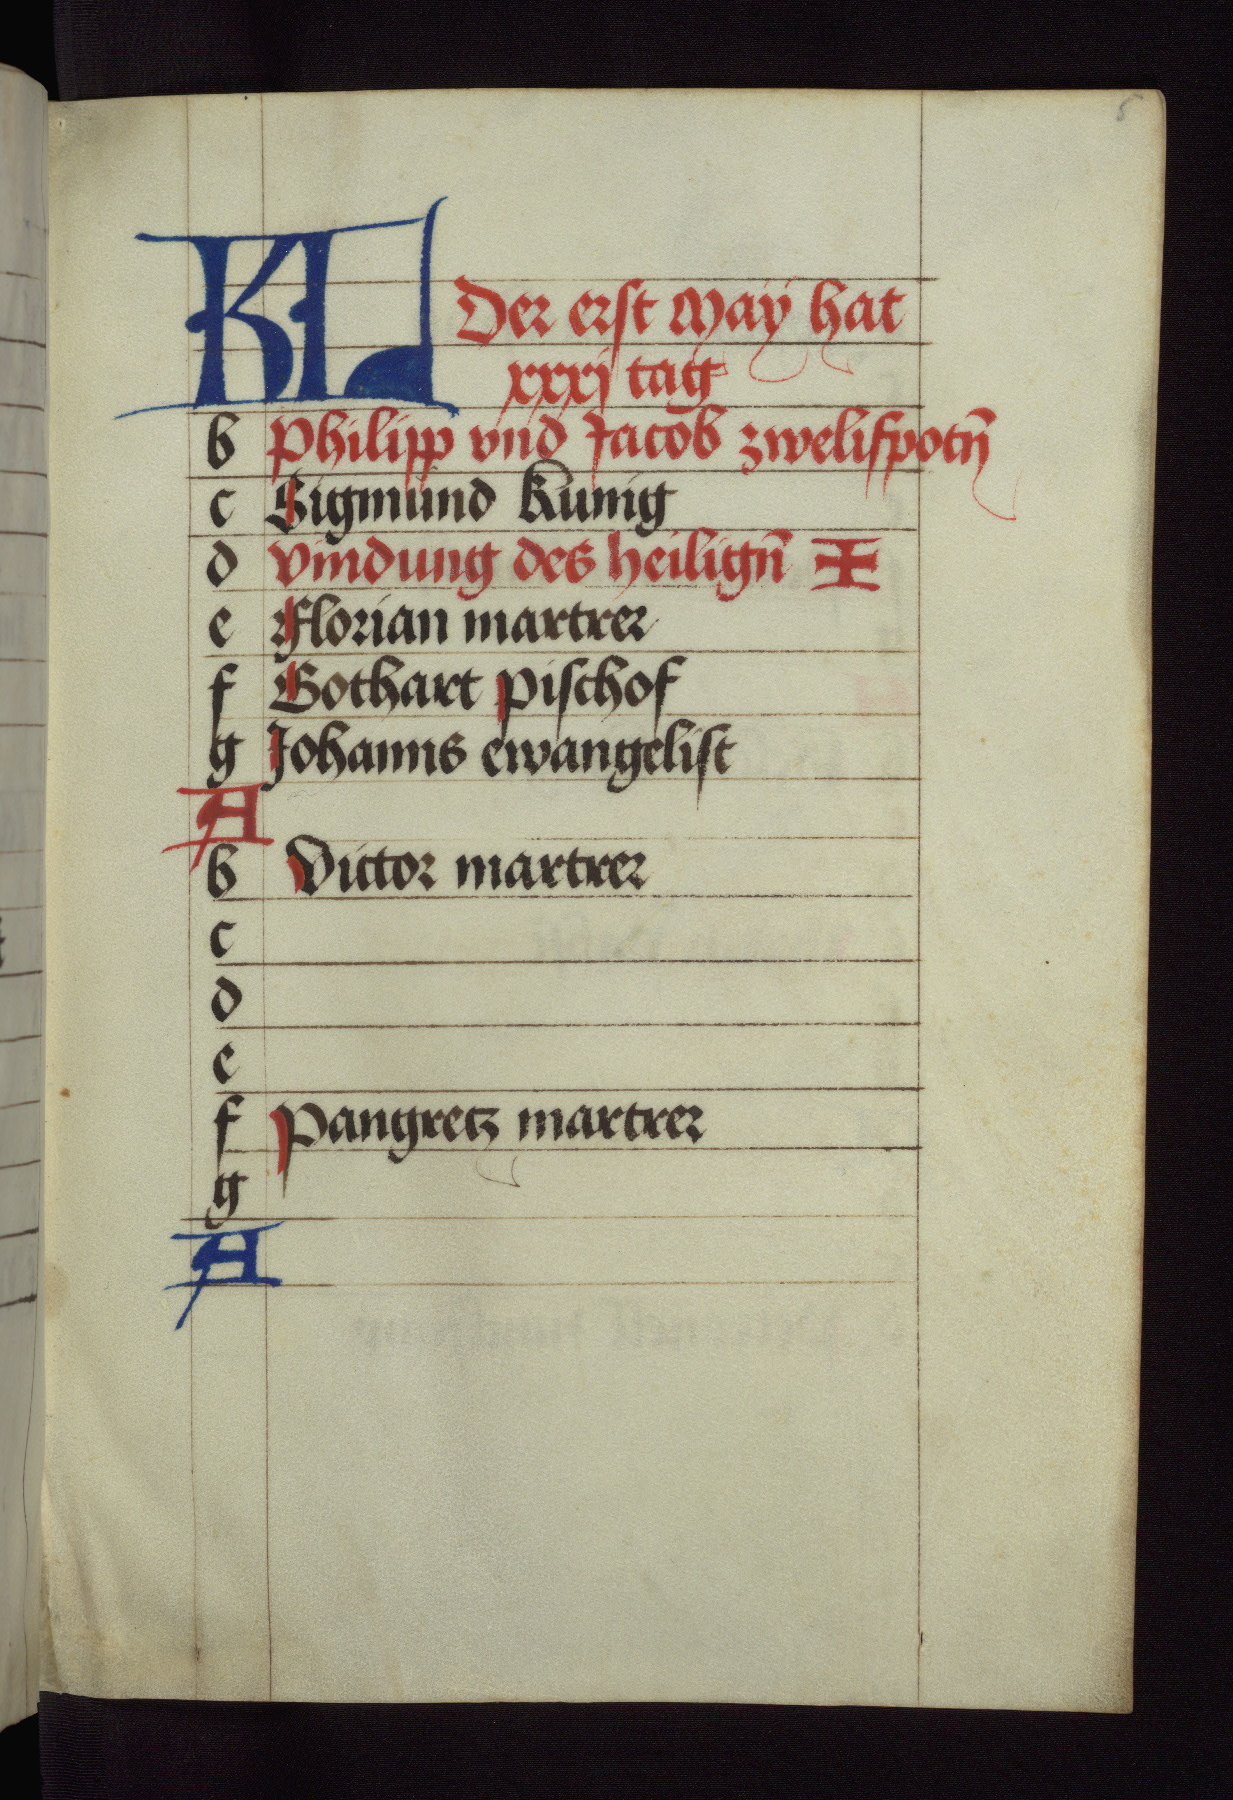 5
KL Der erst May hat
xxxj tag
b Philipp vnd Jacob zwelifpotn̄
c Sigmund Kunig
d vindung des heilign̄ ✠
e Florian martrer
f Gothart pischof
g Johanns ewangelist
A
b Victor martrer
c
d
e
f Pangretz martrer
g
A